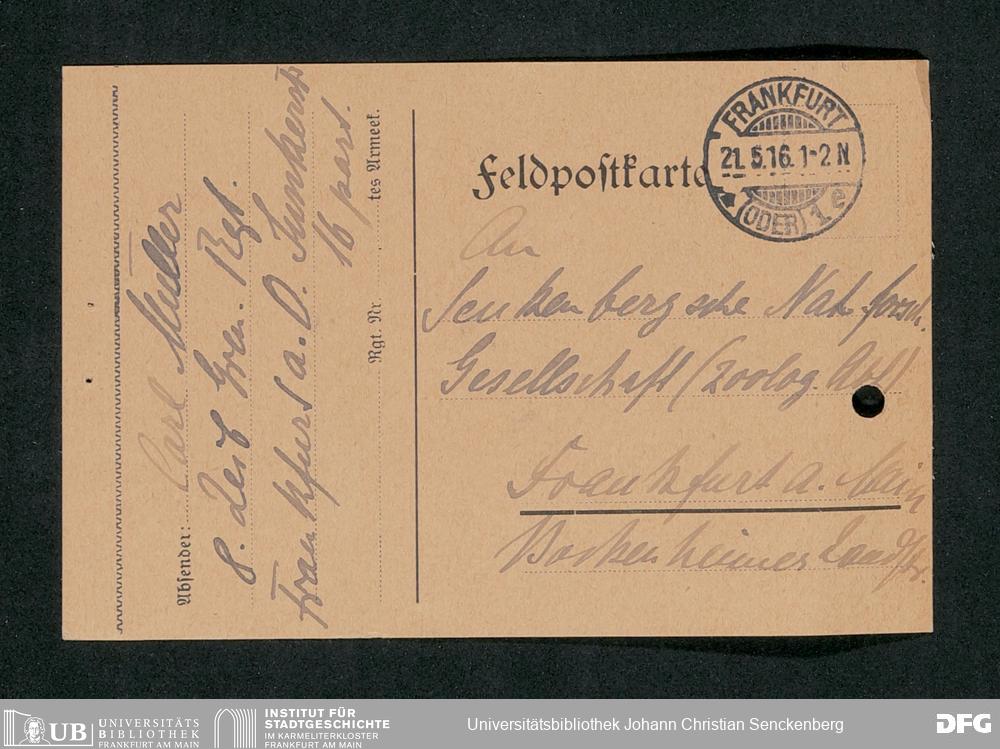 Feldpostkarte
FRANKFURT
21.5.16.1-2N
(ODER) 1 e
An
Senkenbergsche Nat. forsch.
Gesellschaft (Zoolog. Abt)
Frankfurt a. Main
Bockenheimer Landstr.
Absender: Carl Müller
8. Gren. Rgt.
Frankfurt a. O.
16 part.
Rgt. Nr. tes Armeek.
UB UNIVERSITÄTS
BIBLIOTHEK
FRANKFURT AM MAIN
INSTITUT FÜR
STADTGESCHICHTE
IM KARMELITERKLOSTER
FRANKFURT AM MAIN
Universitätsbibliothek Johann Christian Senckenberg
DFG